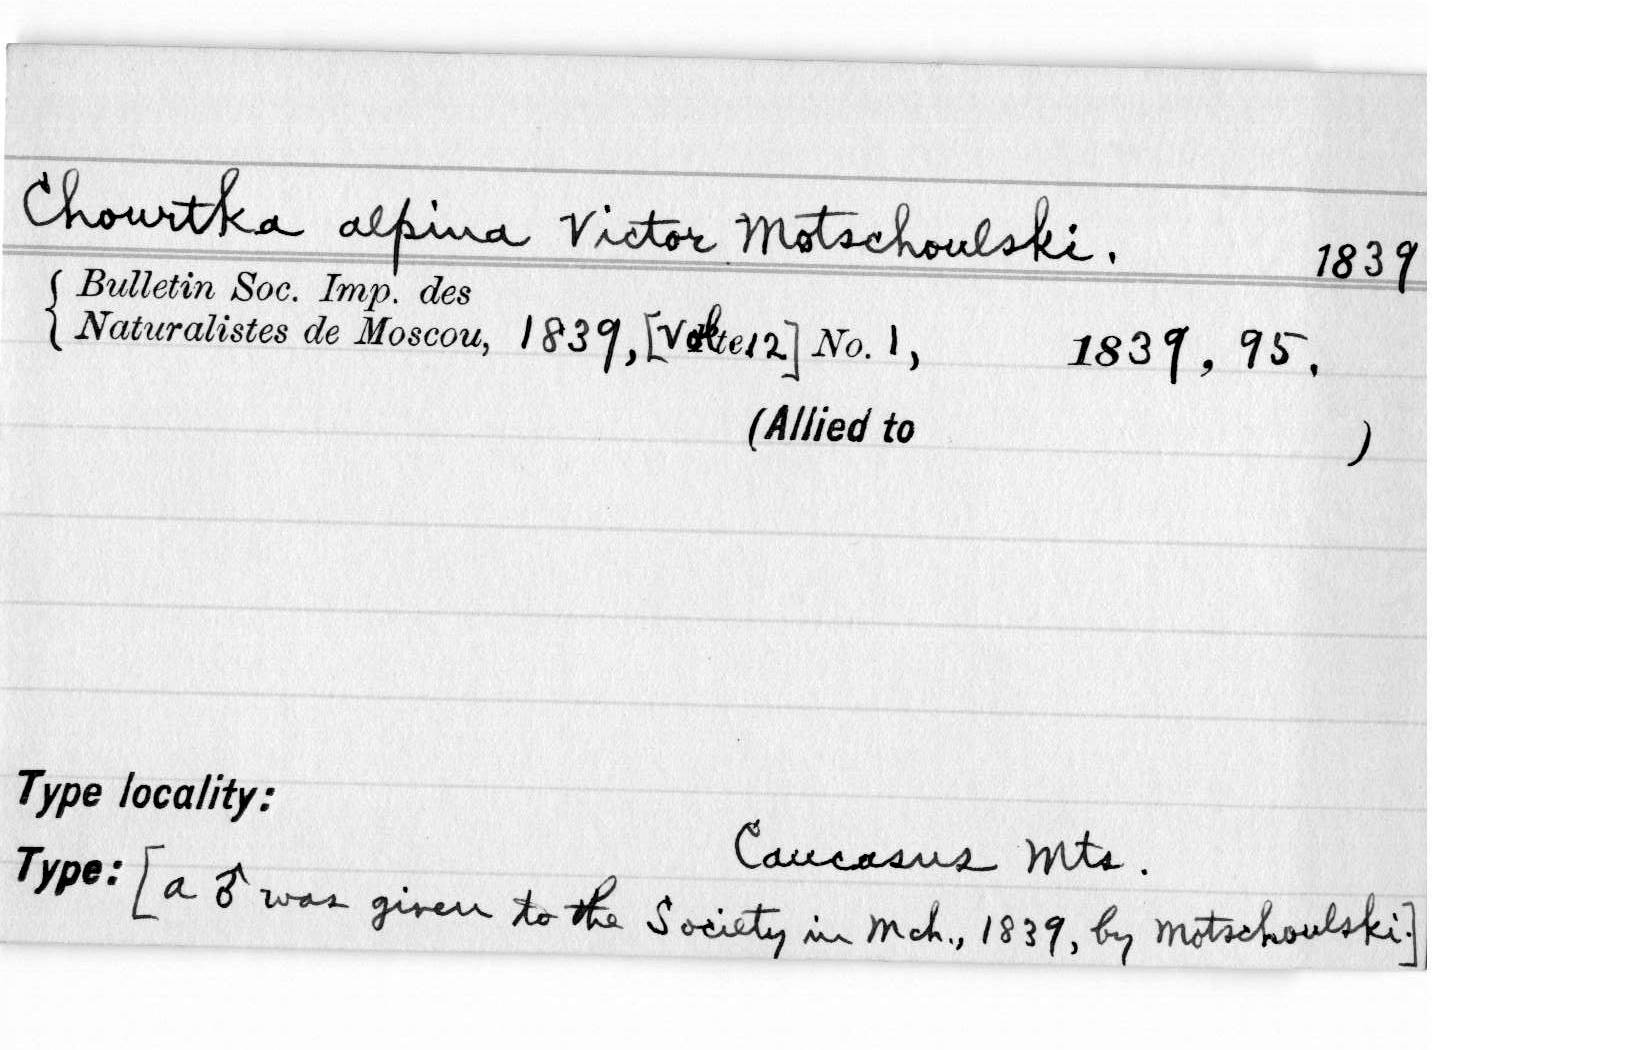 Chourtka alpina Victor Motschoulski. 1839
{ Bulletin Soc. Imp. des
Naturalistes de Moscou, 1839, [Vol 12] No. 1, 1839, 95.
(Allied to )
Type locality:
Caucasus Mts.
Type: [a ♂ was given to the Society in Mch., 1839, by Motschoulski.]